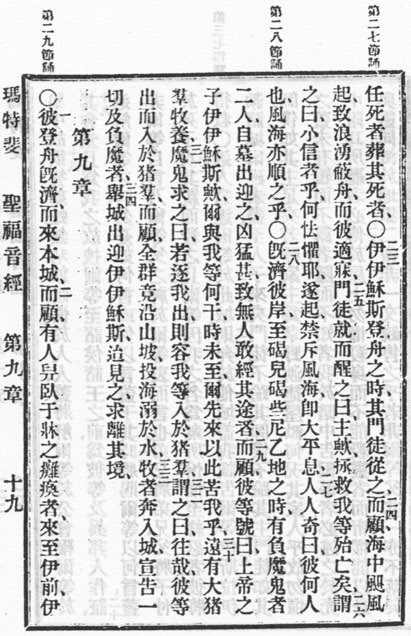 第二七節誦
任死者葬其死者〇二三伊伊穌斯登舟之時其門徒從之二四而顧海中颶風
起致浪湧蔽舟而彼適寐二五門徒就而醒之曰主歟拯救我等殆亡矣二六謂
之曰小信者乎何怯懼耶遂起禁斥風海卽大平息二七人人奇曰彼何人
第二八節誦
也風海亦順之乎〇二八旣濟彼岸至碣兒碣些尼乙地之時有負魔鬼者
二人自墓出迎之凶猛甚致無人敢經其途者二九而顧彼等號曰上帝之
子伊伊穌斯歟爾與我等何干時未至爾先來以此苦我乎三十遠有大猪
羣牧養三一魔鬼求之曰若逐我出則容我等入於猪羣三二謂之曰往哉彼等
出而入於猪羣而顧全群竟沿山坡投海溺於水三三牧者奔入城宣告一
切及負魔者三四舉城出迎伊伊穌斯迨見之求離其境
第九章
第二九節誦
〇一彼登舟旣濟而來本城二而顧有人舁臥于牀之癱瘓者來至伊前伊
瑪特斐 聖福音經 第九章 十九